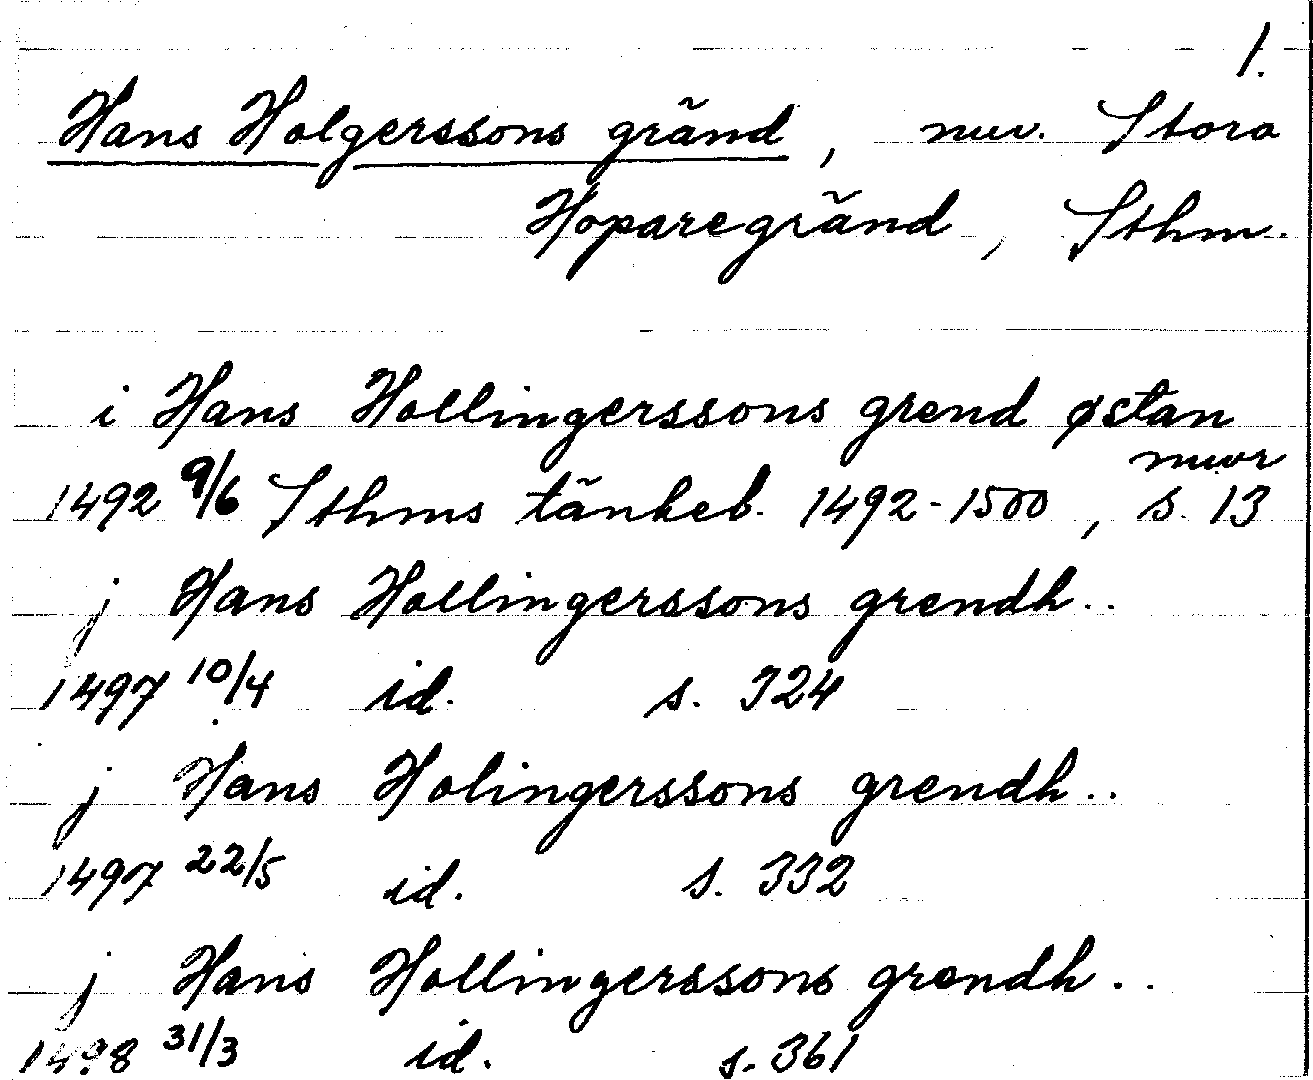 1.
Hans Holgerssons gränd, nuv. Stora
Hoparegränd, Sthm.
i Hans Hollingerssons grend østan
muor
1492 9/6 Sthms tänkeb. 1492-1500, s. 13
j Hans Hollingerssons grendh..
1497 10/4 id. s. 324
j Hans Holingerssons grendh..
1497 22/5 id. s. 332
j Hans Hollingerssons grendh..
1498 31/3 id. s. 361